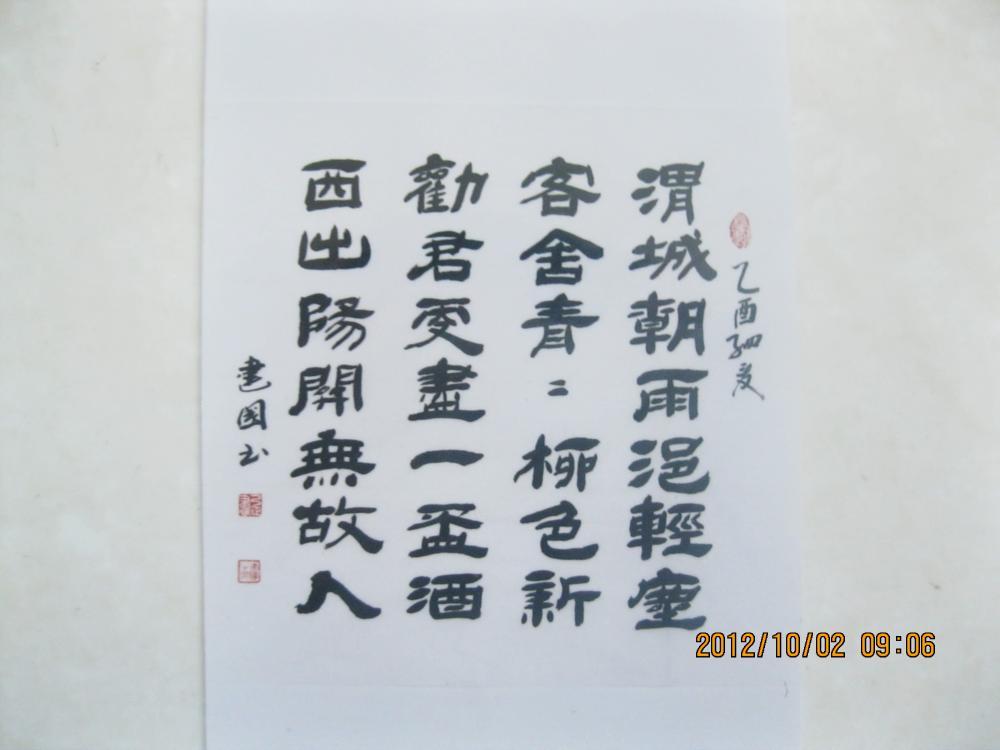 乙酉初夏
渭城朝雨浥輕塵
客舍青〻柳色新
勸君更盡一盃酒
西出陽關無故人
建國书
2012/10/02 09:06